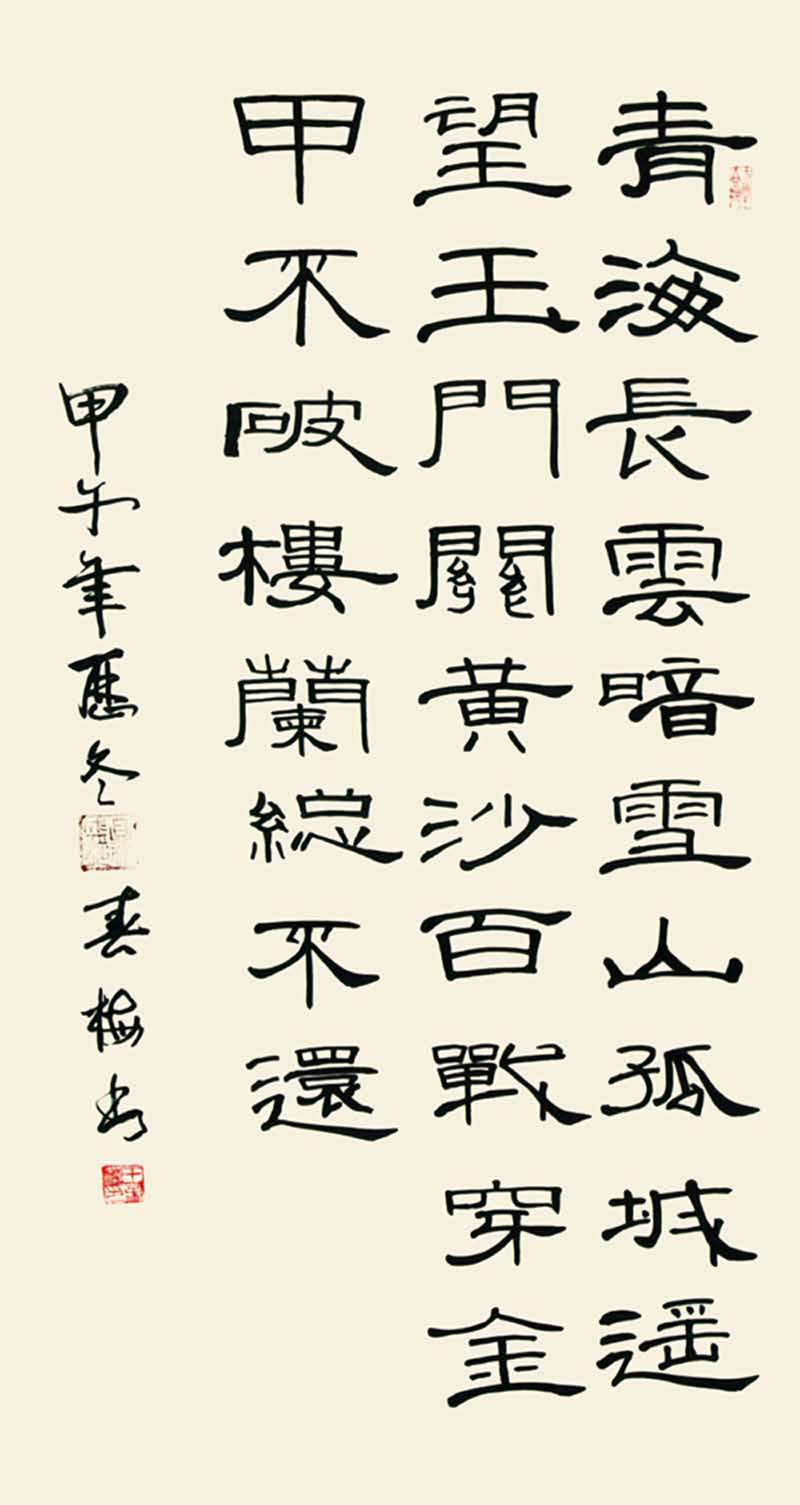 青海長雲暗雪山孤城遥
望玉門關黄沙百戰穿金
甲不破樓蘭総不還
甲午年歷冬春梅書